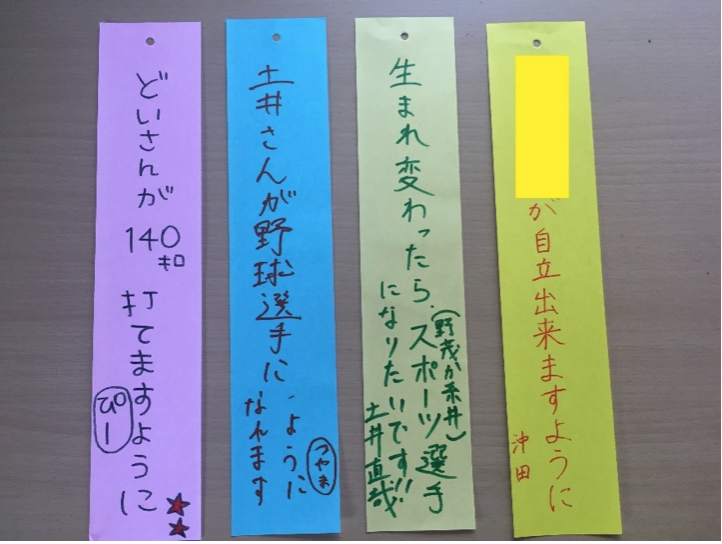 どいさんが
140
キロ
打てますように
ぴー
土井さんが野球選手に
なれます
ように
つやま
生まれ変わったら、スポーツ選手
(野茂か糸井)
になりたいです!!
土井直哉
が自立出来ますように
沖田